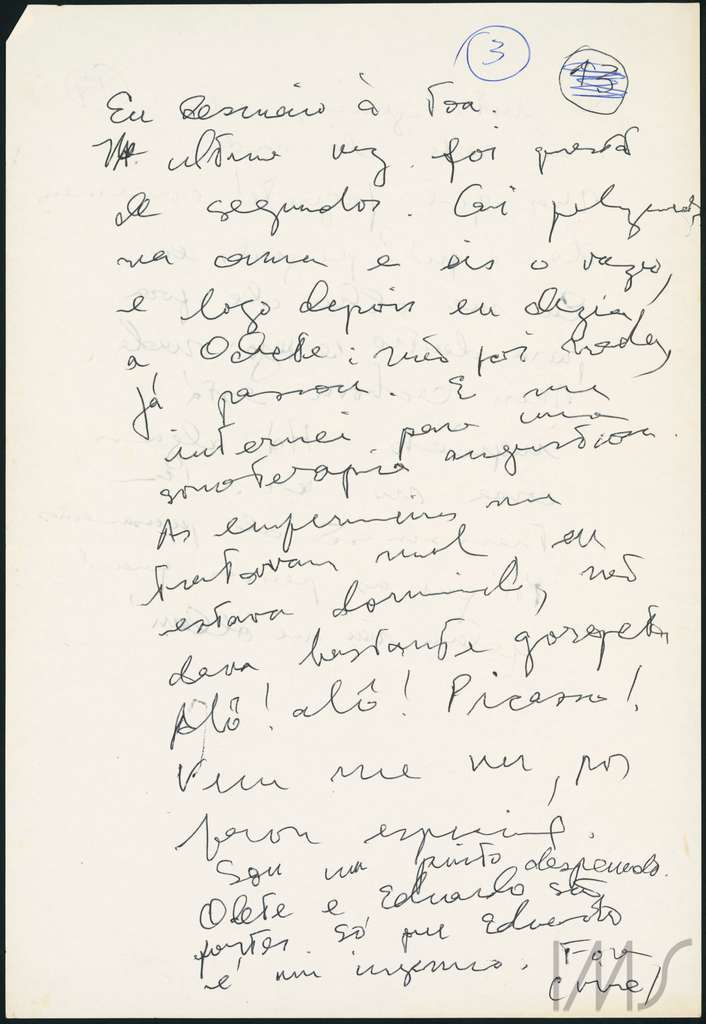 3
13
Eu desmaio à toa.
Na ultima vez foi questão
de segundos. Caí
na cama e eis o vazio,
e logo depois eu dizia
a Odete: não foi nada,
já passou. E me
internei para uma
sonoterapia angustiosa.
As enfermeiras me
tratavam mal eu
estava dormindo, não
dava bastante gorgeta
Alô! alô! Picasso!
Vem me ver, por
favor especial.
Sou um pinto depenado.
Odete e Eduardo são
fortes. Só que Eduardo
é um ingenuo.
IMS